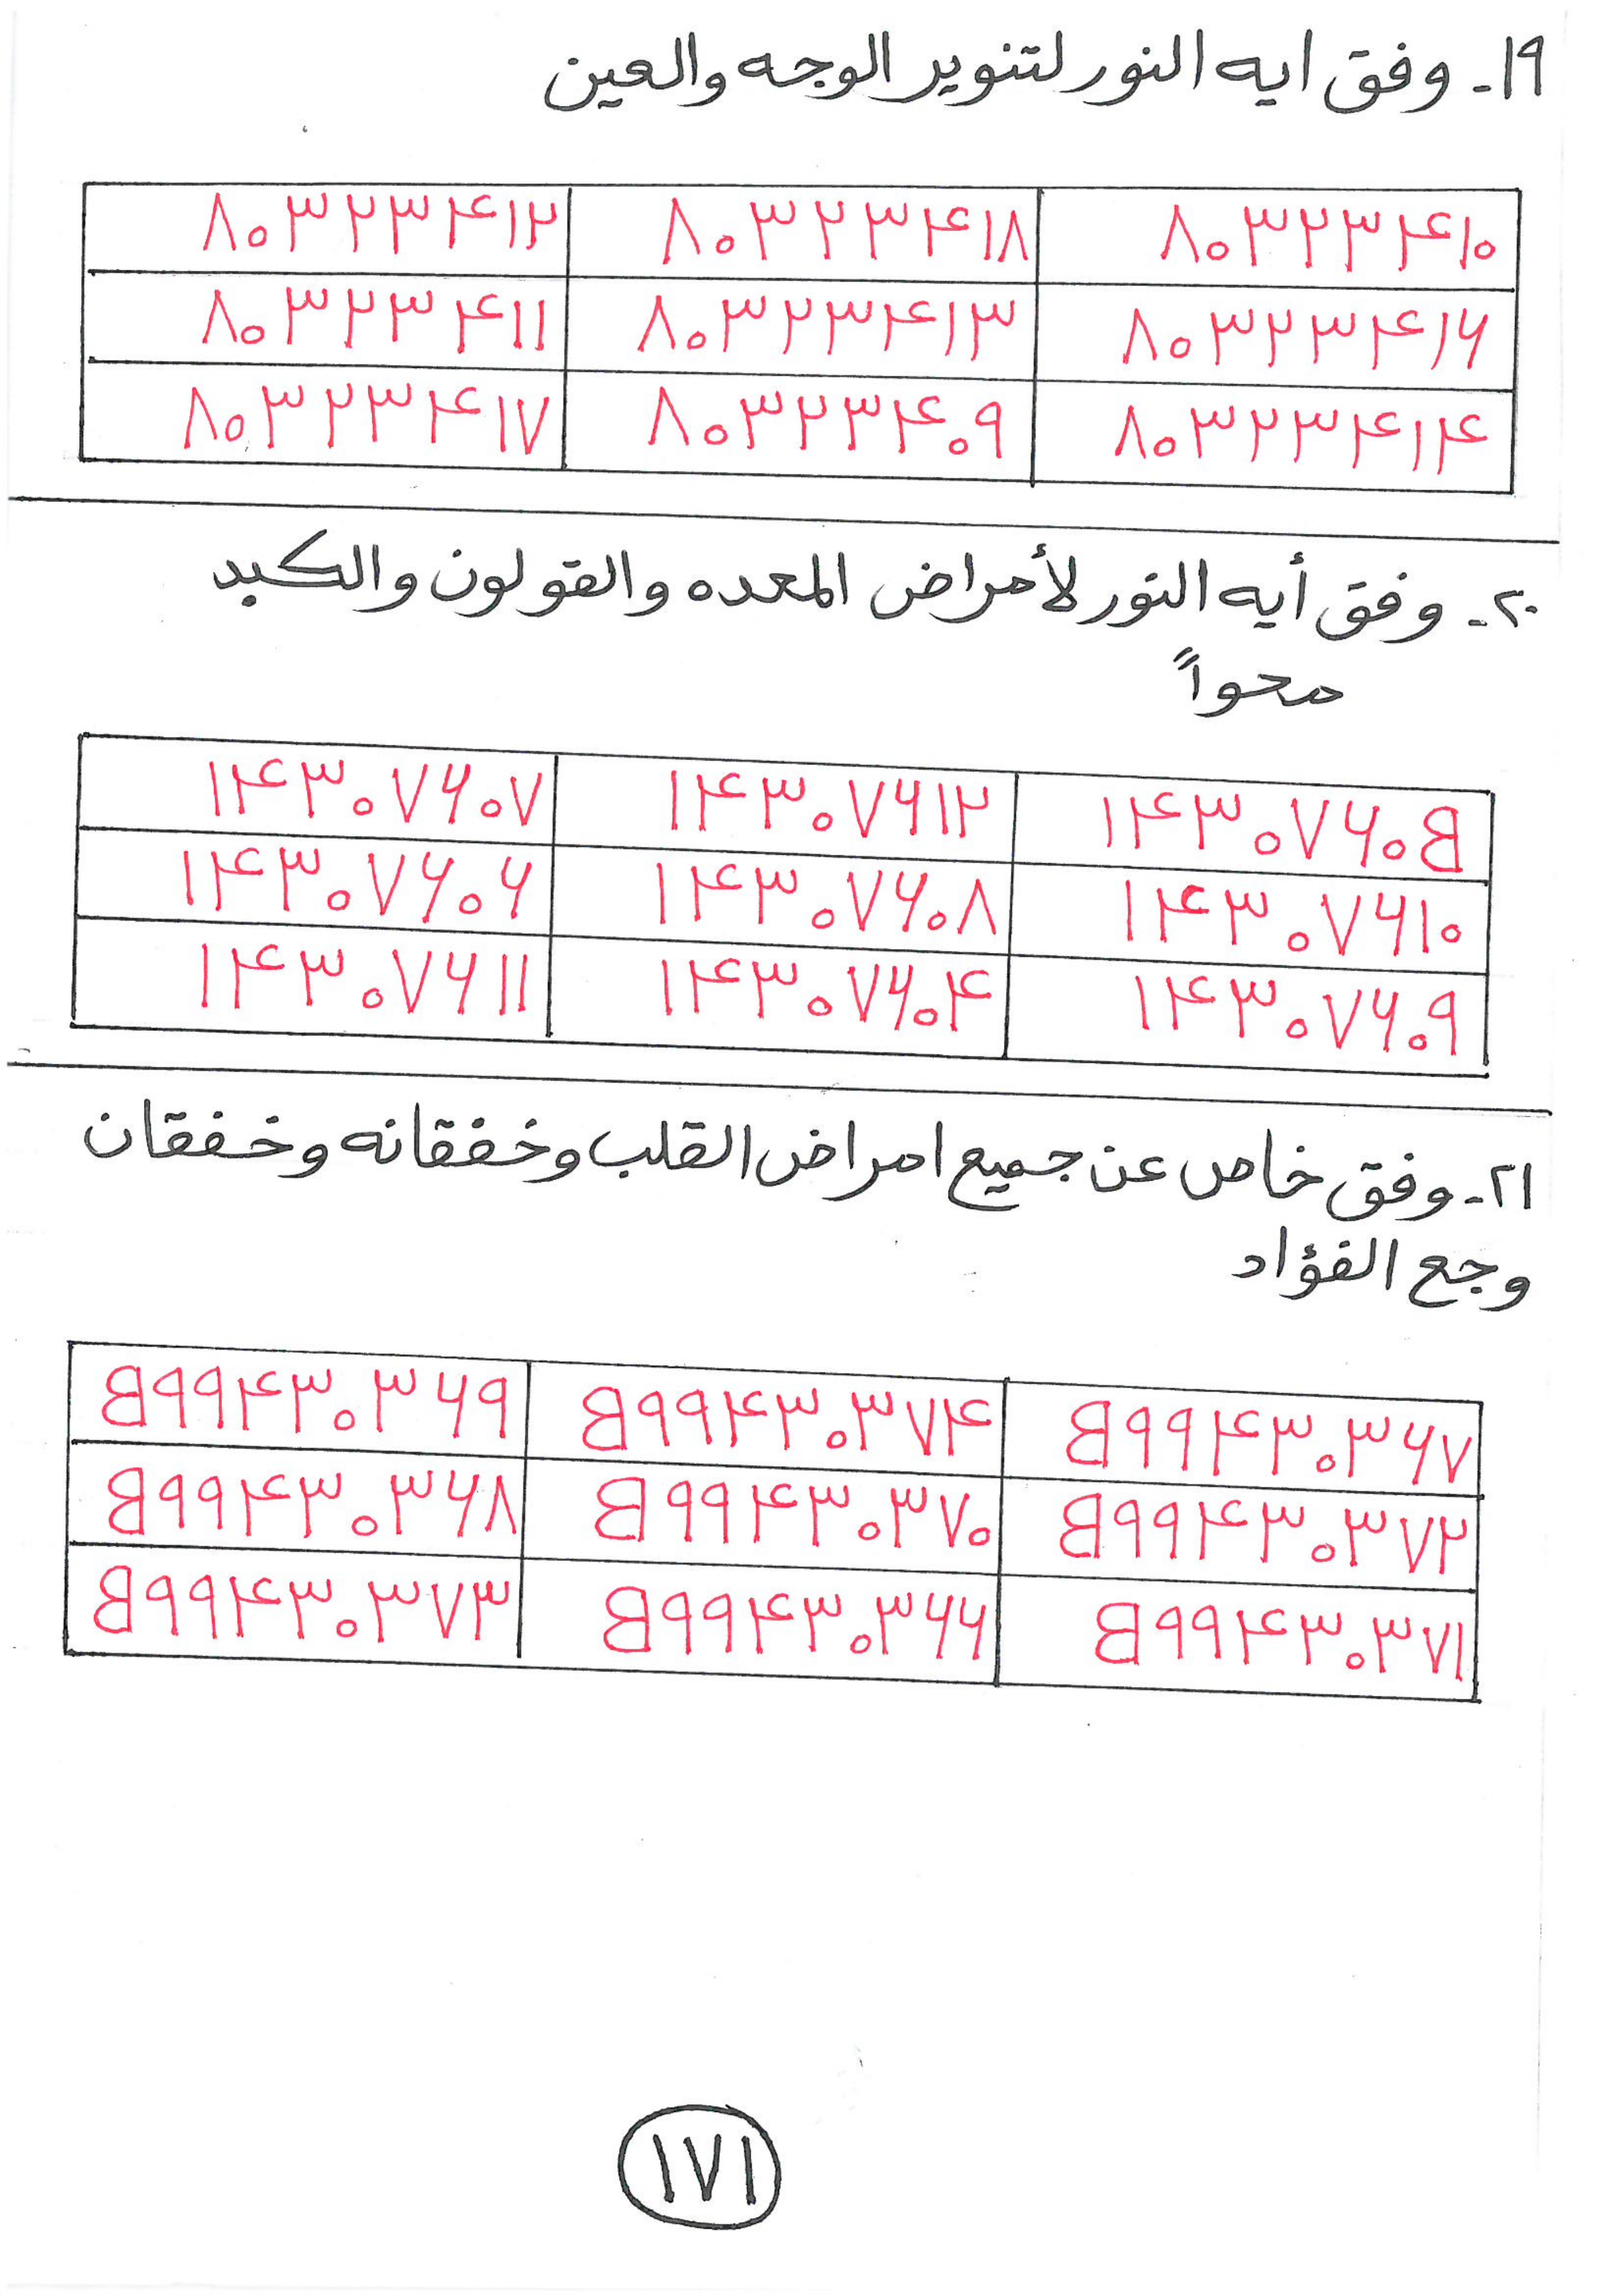 ١٩- وفق ايه النور لتنوير الوجه والعين
٨٠٣٢٣۴١٠ ٨٠٣٢٣۴١٨ ٨٠٣٢٣۴١٢
٨٠٣٢٣۴١۶ ٨٠٣٢٣۴١٣ ٨٠٣٢٣۴١١
٨٠٣٢٣۴١۴ ٨٠٣٢٣۴٠٩ ٨٠٣٢٣۴١٧
٢٠- وفق أيه النور لأمراض المعده والقولون والكبد
محواً
١۴٣٠٧۶٠B ١۴٣٠٧۶١٢ ١۴٣٠٧۶٠٧
١۴٣٠٧۶١٠ ١۴٣٠٧۶٠٨ ١۴٣٠٧۶٠۶
١۴٣٠٧۶٠٩ ١۴٣٠٧۶٠۴ ١۴٣٠٧۶١١
٢١- وفق خاص عن جميع امراض القلب وخفقانه وخفقان
وجع الفؤاد
B٩٩۴٣٠٣۶٧ B٩٩۴٣٠٣٧۴ B٩٩۴٣٠٣۶٩
B٩٩۴٣٠٣٧٢ B٩٩۴٣٠٣٧٠ B٩٩۴٣٠٣۶٨
B٩٩۴٣٠٣٧١ B٩٩۴٣٠٣۶۶ B٩٩۴٣٠٣٧٣
١٧١